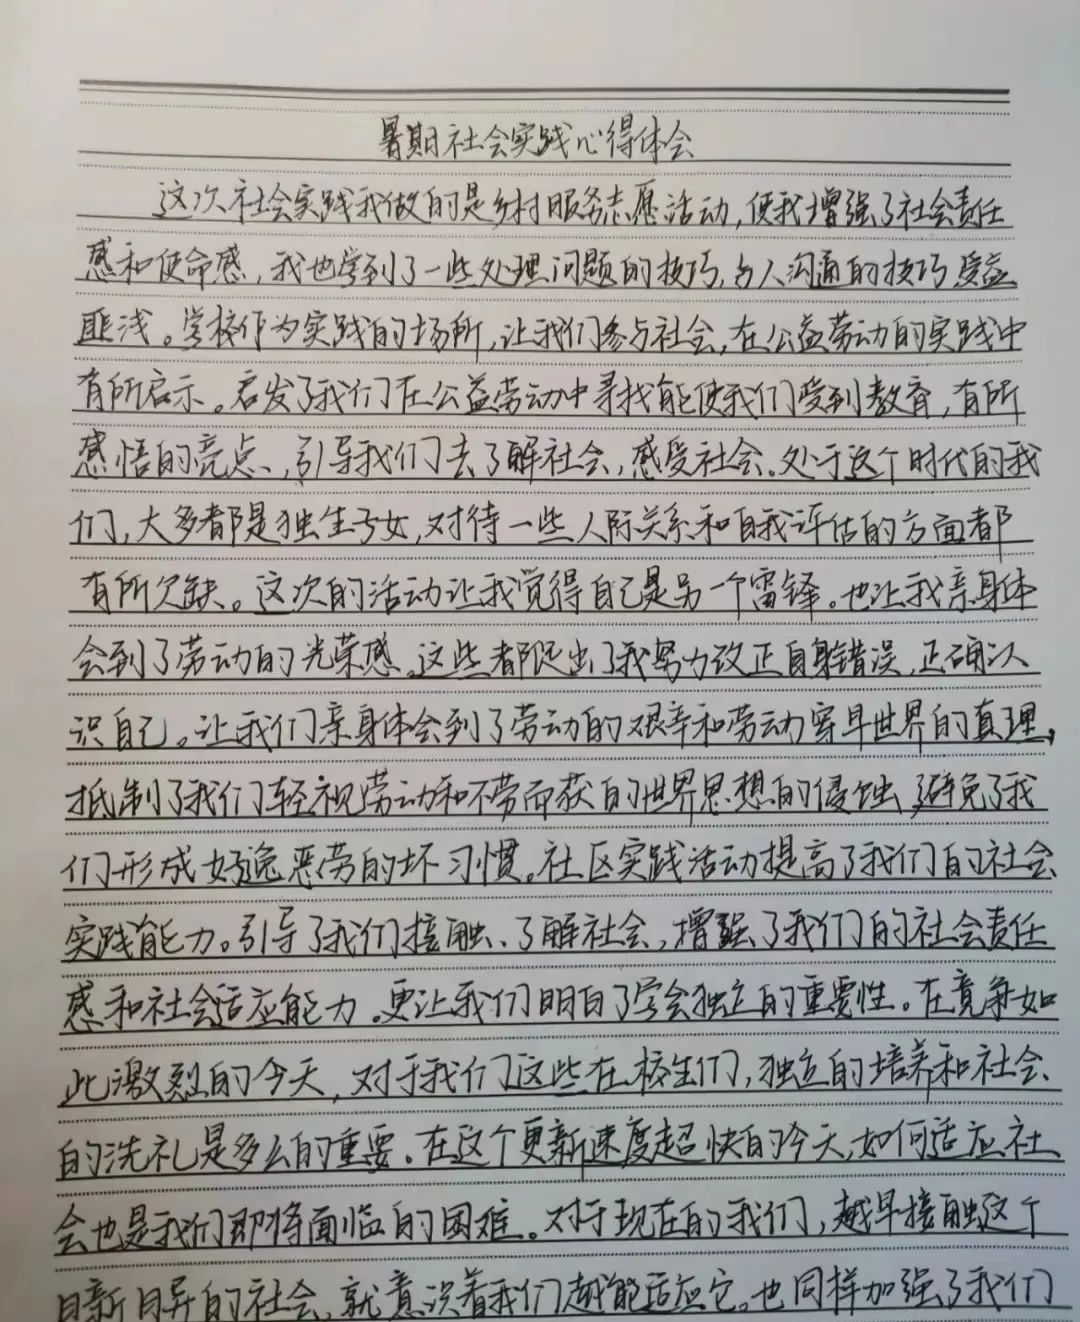 暑期社会实践心得体会
这次社会实践我做的是乡村服务志愿活动,使我增强了社会责任
感和使命感,我也学到了一些处理问题的技巧,与人沟通的技巧受益
匪浅。学校作为实践的场所,让我们参与社会,在公益劳动的实践中
有所启示。启发了我们在公益劳动中寻找能使我们受到教育,有所
感悟的亮点、,引导我们去了解社会,感受社会。处于这个时代的我
们,大多都是独生子女,对待一些人际关系和自我评估的方面都
有所欠缺。这次的活动让我觉得自己是另一个雷锋。也让我亲身体
会到了劳动的光荣感。这些都促出了我努力改正自身错误,正确认
识自己。让我们亲身体会到了劳动的艰辛和劳动穿早世界的真理,
抵制了我们轻视劳动和不劳而获的世界思想的侵蚀,避免了我
们形成好逸恶劳的坏习惯。社区实践活动提高了我们的社会
实践能力。引导了我们接触、了解社会,增强了我们的社会责任
感和社会适应能力。更让我们明白了学会独立的重要性。在竞争如
此激烈的今天,对于我们这些在校生们,独立的培养和社会
的洗礼是多么的重要。在这个更新速度超快的今天,如何适应社
会也是我们即将面临的困难。对于现在的我们,越早接触这个
日新月异的社会,就意识着我们越能适应它。也同样加强了我们